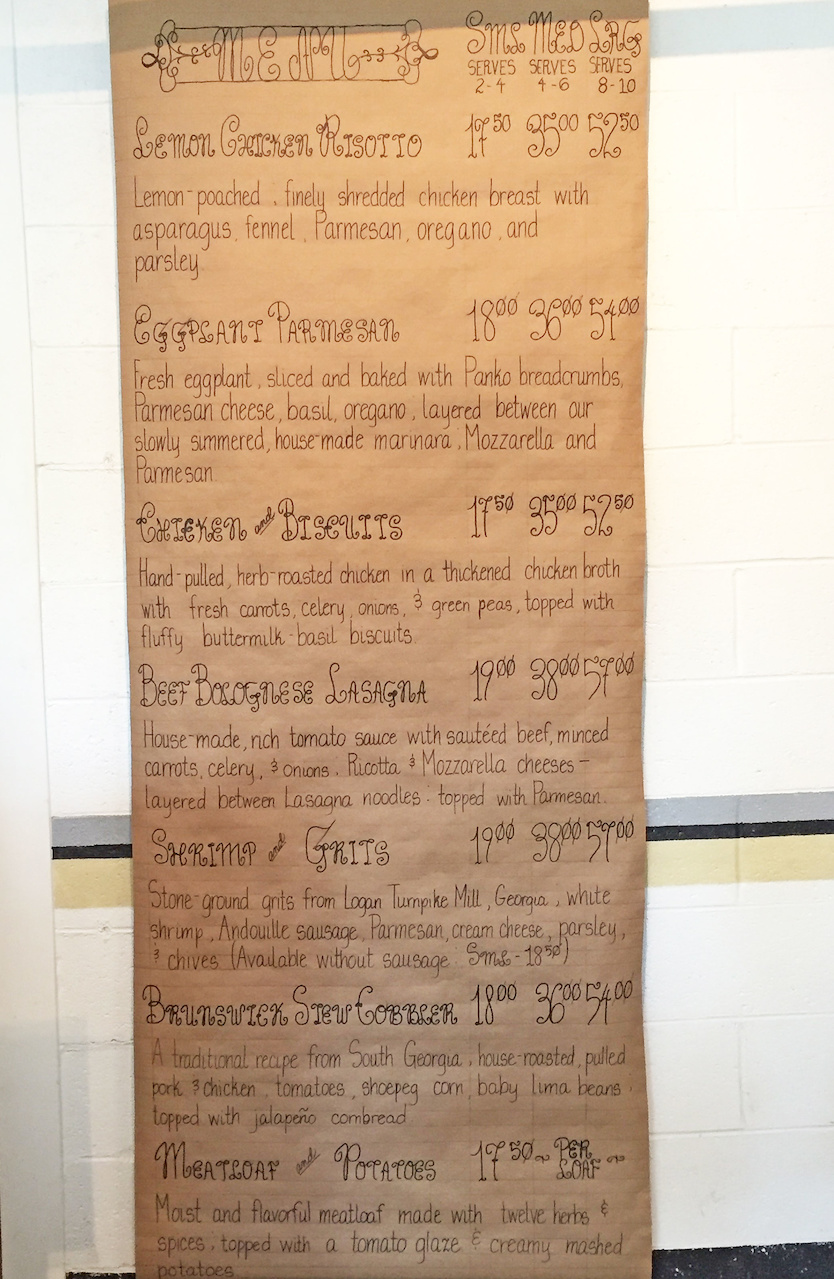 MENU SML MED LRG
SERVES SERVES SERVES
2-4 4-6 8-10
LEMON CHICKEN RISOTTO 17.50 35.00 52.50
Lemon-poached, finely shredded chicken breast with
asparagus, fennel, Parmesan, oregano, and
parsley.
EGGPLANT PARMESAN 18.00 36.00 54.00
Fresh eggplant, sliced and baked with Panko breadcrumbs,
Parmesan cheese, basil, oregano, layered between our
slowly simmered, house-made marinara, Mozzarella and
Parmesan.
CHICKEN and BISCUITS 17.50 35.00 52.50
Hand-pulled, herb-roasted chicken in a thickened chicken broth
with fresh carrots, celery, onions, & green peas, topped with
fluffy buttermilk-basil biscuits.
BEEF BOLOGNESE LASAGNA 19.00 38.00 57.00
House-made, rich tomato sauce with sautéed beef, minced
carrots, celery, & onions. Ricotta & Mozzarella cheeses -
layered between Lasagna noodles. topped with Parmesan.
SHRIMP and GRITS 19.00 38.00 57.00
Stone-ground grits from Logan Turnpike Mill, Georgia, white
shrimp, Andouille sausage, Parmesan, cream cheese, parsley,
& chives (Available without sausage: SML - 18.50)
BRUNSWICK STEW COBBLER 18.00 36.00 54.00
A traditional recipe from South Georgia, house-roasted, pulled
pork & chicken, tomatoes, shoepeg corn, baby lima beans.
topped with jalapeño cornbread
MEATLOAF and POTATOES 17.50~ PER LOAF ~
Moist and flavorful meatloaf made with twelve herbs &
spices, topped with a tomato glaze & creamy mashed
potatoes.